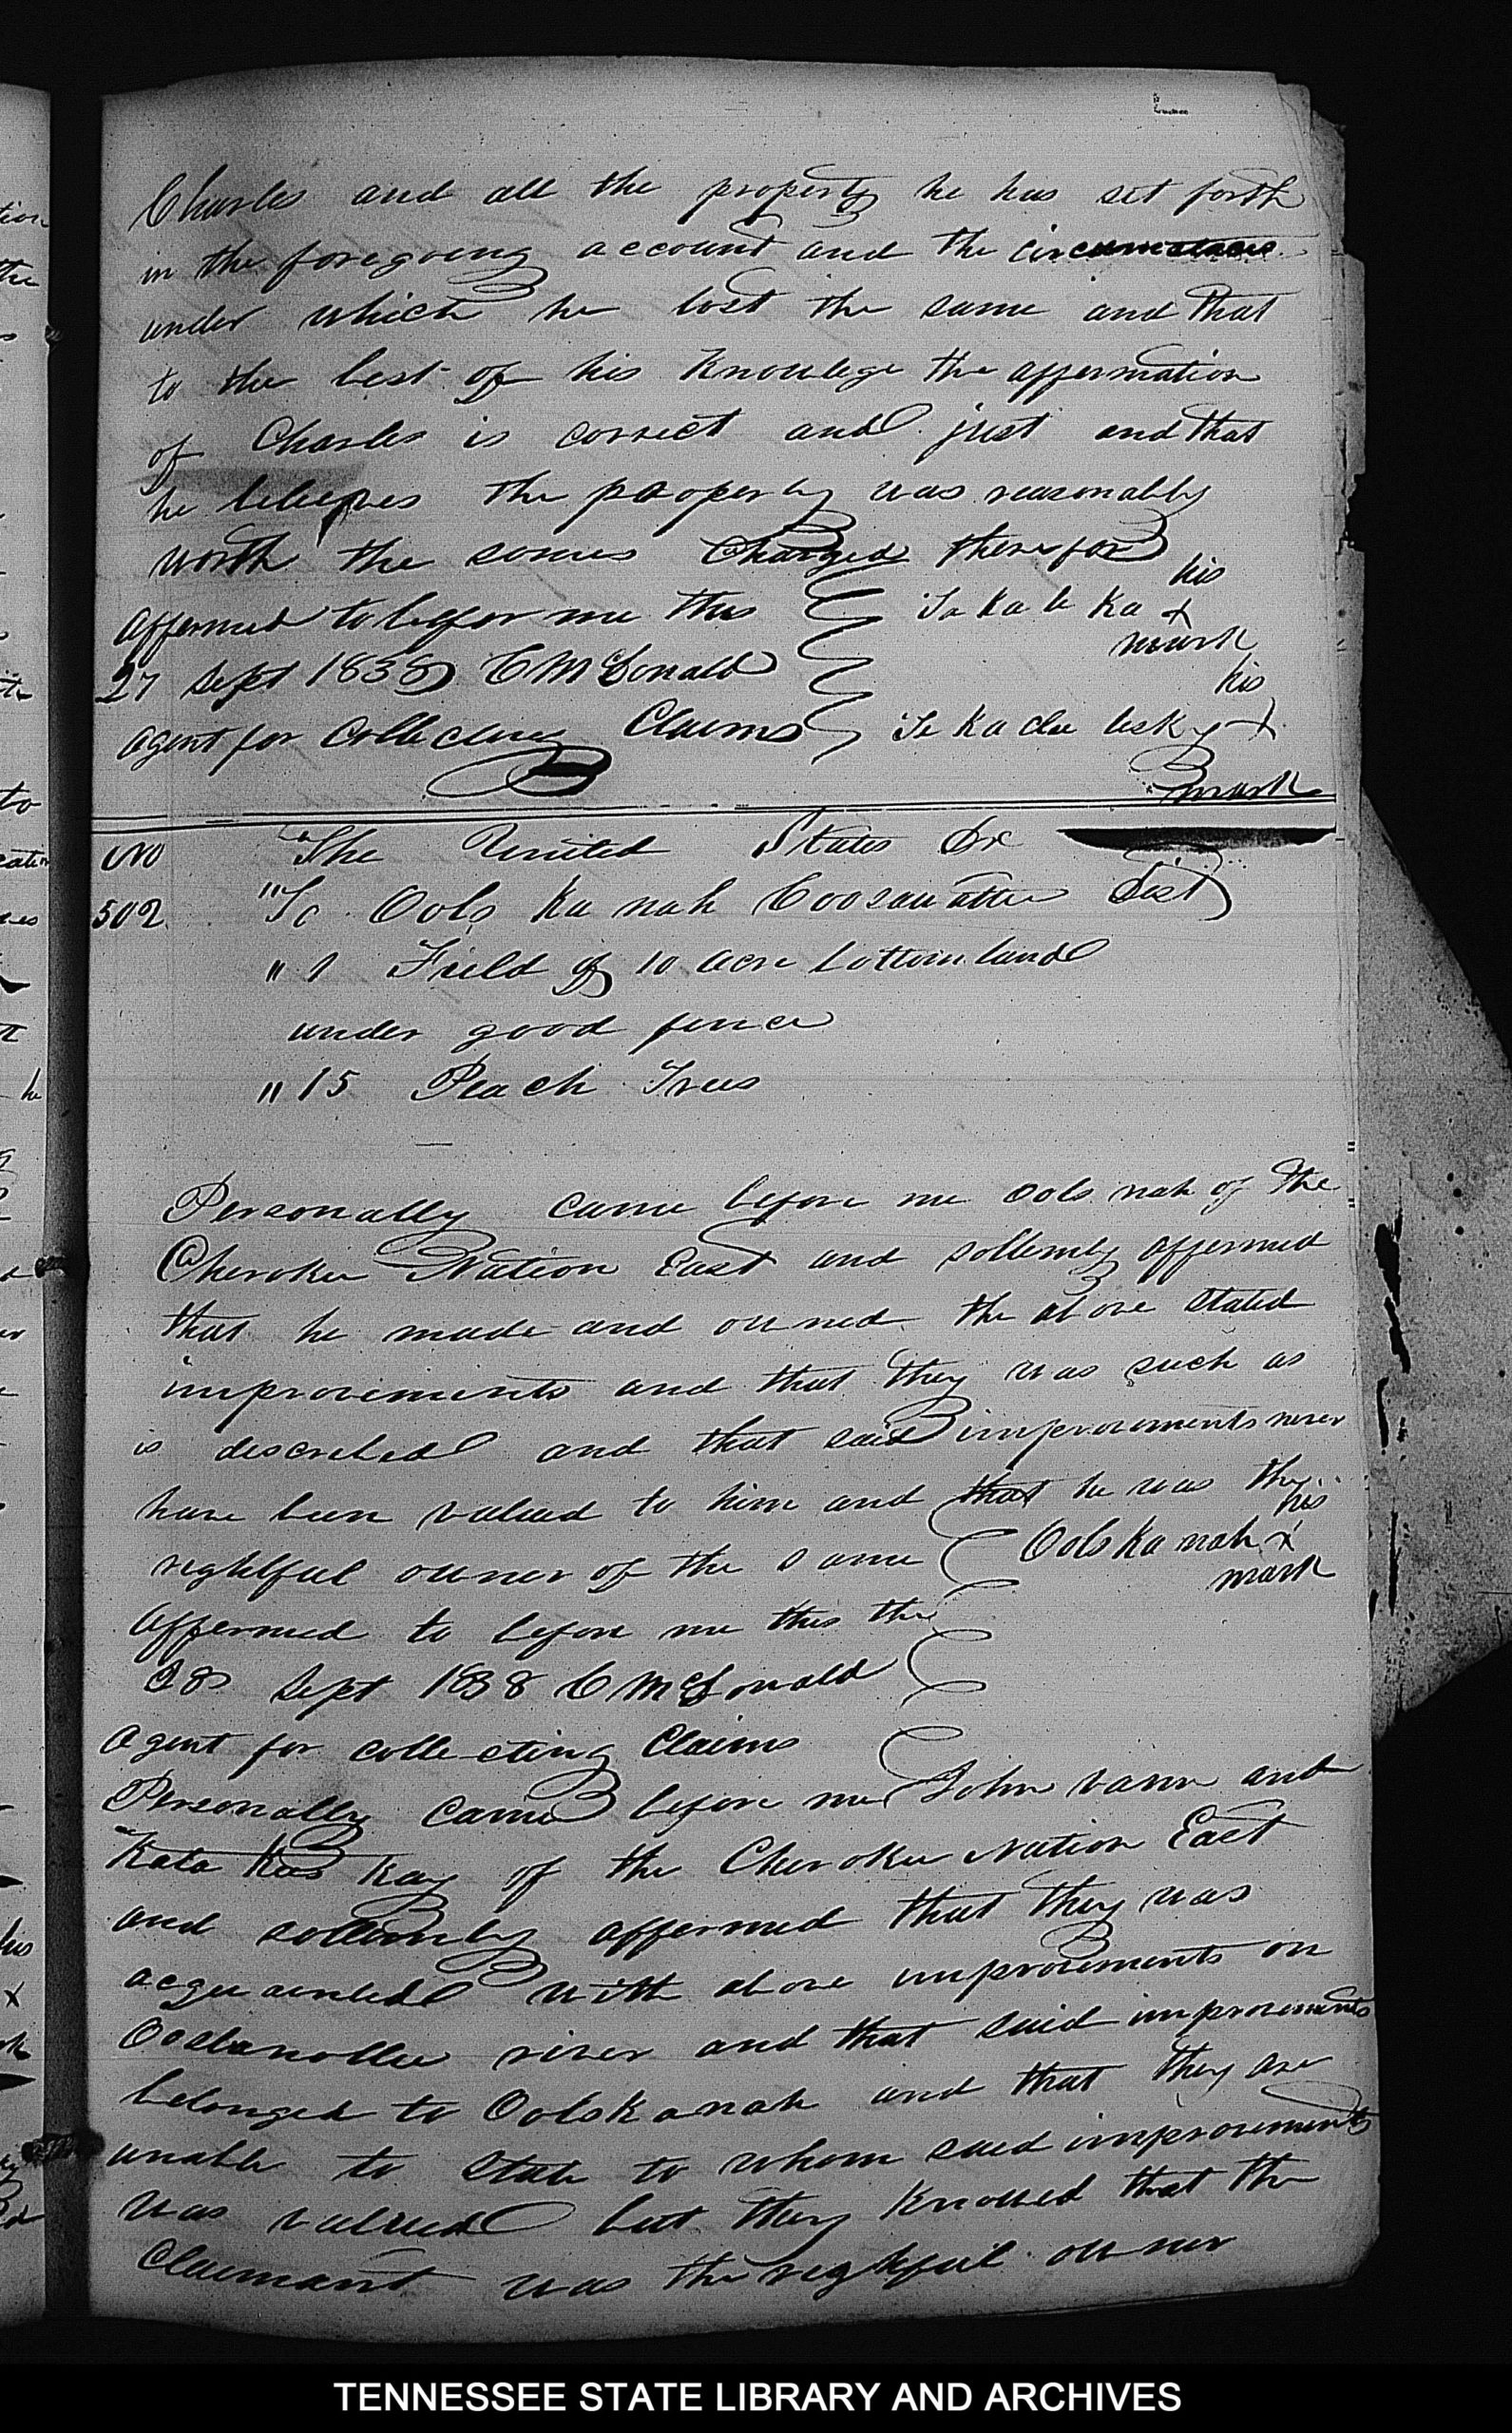 Charles and all the property he has set forth
in the foregoing account and the circumstances
under which he lost the same and that
to the best of his Knowlege the affermation
of Charles is correct and just and that
he believes the property was reasonably
worth the somes Charged therefor
his
Affermed to before me this
mark
27 Sept 1838 C McDonald
his
agent for Collecting Claims
mark
No The United States Dr
502 "To Ools Ka nah Coosawattee Dist
" 1 Field of 10 acre bottom land
under good fence
" 15 Peach Trees
Personally came before me Ools nah of the
Cherokee Nation East and sollemly affermed
that he made and owned the above stated
improvements and that they was such as
is discribed and that said improvements never
have been valued to him and that he was the
his
rightful owner of the same Ools Ka nah x
mark
Affermed to before me this the
28 Sept 1838 C McDonald
agent for collecting Claims
Personally Came before me John vann and
Kay of the Cherokee Nation East
and sollemly affermed that they was
acquainted with above improvements on
river and that said improvements
belonged to Oolskanah and that they are
unable to State to whom said improvements
was valued but they Knowed that the
Claimant was the rightful owner
TENNESSEE STATE LIBRARY AND ARCHIVES